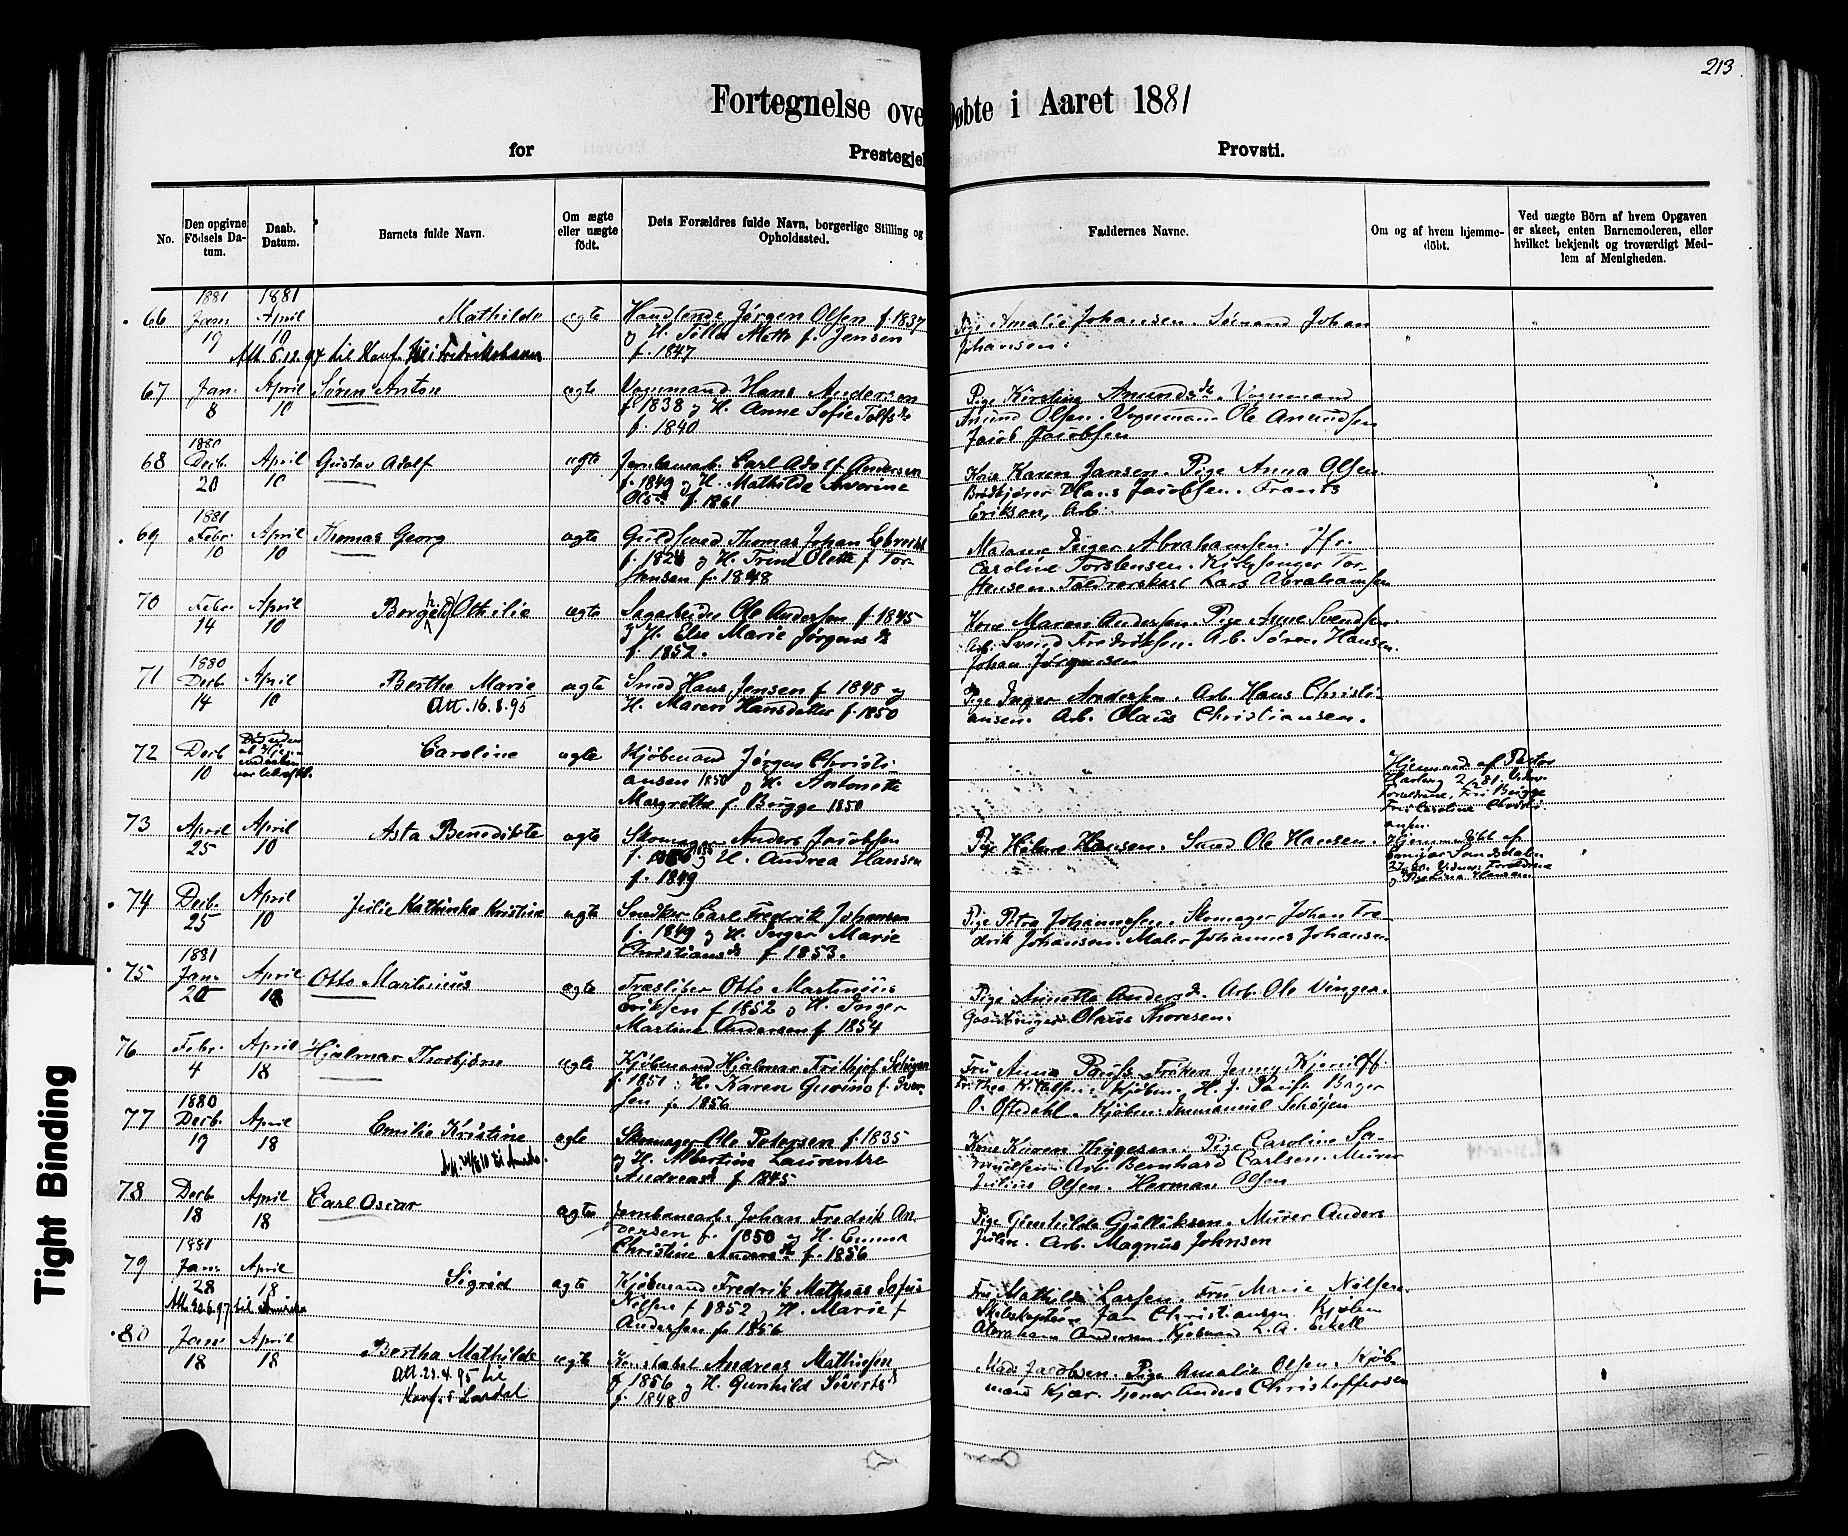 213
Fortegnelse ove Døbte i Aaret 1881
for Prestegjel Provsti.
No.
Den opgivne Födsels Da-tum.
Daab. Datum.
Barnets fulde Navn.
Om ægte eller uægte födt.
Dets Forældres fulde Navn, borgerlige Stilling og Opholdssted.
Faddernes Navne.
Om og af hvem hjemme-döbt.
Ved uægte Börn af hvem Opgaven er skeet, enten Barnemoderen, eller hvilket bekjendt og troværdigt Med-lem af Menigheden.
66 1881 Jan 19 1881 April 10 Mathilde ægte
Handlende Jørgen Olsen f. 1837
f. Jensen
f. 1847
Pige Amalie Johansen. Sömand Johan
Johansen.
67 Jan. 8 April 10 Søren Anton ægte
Vognmand Hans Andersen
f. 1838 og H. Anne Sofie
f. 1840
Pige Kirstine Amundsdr. Vognmand
Amund Olsen. Vognmand Ole Amundsen
Jacob Jacobsen
68 1880 Decb. 20 April 10 Gustav Adolf ægte
Jernbanearb. Carl Adolf Andersen
f. 1849 og H. Mathilde Severine
Olsdr f. 1861
Kone Karen Jansen. Pige Anna Olsen
Hans Jacobsen. Frants
Eriksen, Arb.
69 1881 Febr. 10 April 10 Thomas Georg ægte
Guldsmed Thomas Johan
og H. Trine Olette f. Tor-
stensen f. 1848
Madame Inger Abrahamsen. Fr.
Caroline Torstensen. Kirkesanger Tor-
stensen. Lars Abrahamsen
70 Febr. 14 April 10 Borghild Othilie ægte
Sagarbeider Ole Andersen f. 1845
og H. Else Marie Jørgensdr
f. 1852.
Kone Maren Andersen. Pige Anne Svendsen.
Arb. Svend Fredriksen. Arb. Søren Hansen.
Johan Jørgensen
71 1880 Decb. 14 April 10 Berthe Marie ægte
Att. 16.8.95
Smed Hans Jensen f. 1848 og
H. Maren Hansdatter f. 1850
Pige Inger Andersen. Arb. Hans Christi-
ansen. Arb. Olaus Christiansen.
72 Decb 10 Caroline ægte
Kjøbmand Jørgen Christi-
ansen 1850 og H. Antonette
Margrethe f. Brygge 1850
Hjemmed. af Pastor
73 April 25 April 10 Asta Benedikte ægte
Skomager Anders Jacobsen
og H. Andrea Hansen
f. 1849
Pige Helene Hansen. Smed Ole Hansen.
74 Decb. 25 April 10 Julie Kathinka Kristine ægte
Snedker Carl Fredrik Johansen
f. 1849 og H. Inger Marie
Christiansdr f. 1853.
Pige Petra Johannesen. Skomager Johan Fre-
drik Johansen. Maler Johannes Johansen
75 1881 Jan. 20 April 18 Otto Martinius ægte
Træsliber Otto Martinius
Eriksen f. 1852 og H. Inger
Martine Andersen f. 1854
Pige Annette Andersdr. Arb. Ole Vinger.
Olaus Thoresen.
76 Febr. 4 April 18 Hjalmar Thorbjørn ægte
Kjøbmand Hjalmar Frithjof Schøyen
f. 1851. H. Karen f. Iver-
sen f. 1856
Fru Anna Paus. Frøken Jenny
Kjøbm. H. J. Paus. Bager
O. Oftedahl. Kjøbm. Immanuel Schöyen
77 1880 Decb. 19 April 18 Emilie Kristine ægte
Skomager Ole Petersen f. 1835
og H. Albertine Laurentze
Andreasdr f. 1845
Kone Karen Higgesen. Pige Caroline Sa-
muelsen. Arb. Bernhard Carlsen. Murer
Julius Olsen. Herman Olsen
78 Decb 18 April 18 Carl Oscar ægte
Jernbanearb. Johan Fredrik An-
dersen f. 1850 og H. Emma
Christine Andersdr f. 1856
Pige Gunhilde Gulliksen. Murer Anders
Julin. Arb. Magnus Johnsen
79 1881 Jan. 28 April 18 Sigrid ægte
Att. 20.6.97 til Amerika
Kjøbmand Fredrik Mathias Sofus
Nilsen f. 1852 og H. Marie f.
Andersen f. 1856
Fru Mathilde Larsen. Fru Marie Nilsen.
Skibskaptein Jan Christiansen Kjøbm
Abraham Andersen. Kjøbmand L. A.
80 Jan 18 April 18 Bertha Mathilde ægte
Att. 23.4.95 til
Konf. i Lardal
Konstabel Andreas Mathiesen
f. 1856 og H. Gunhild Sivertsdr
f. 1848
Mad. Jacobsen. Pige Amalie Olsen. Kjøb-
mand Kjær. Tjener Anders Christoffersen
Tight Binding